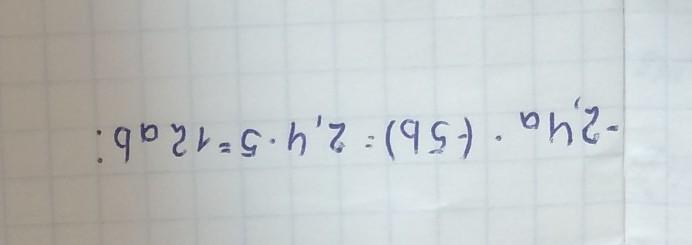 -2,4a · (-5b) = 2,4 · 5 = 12ab: